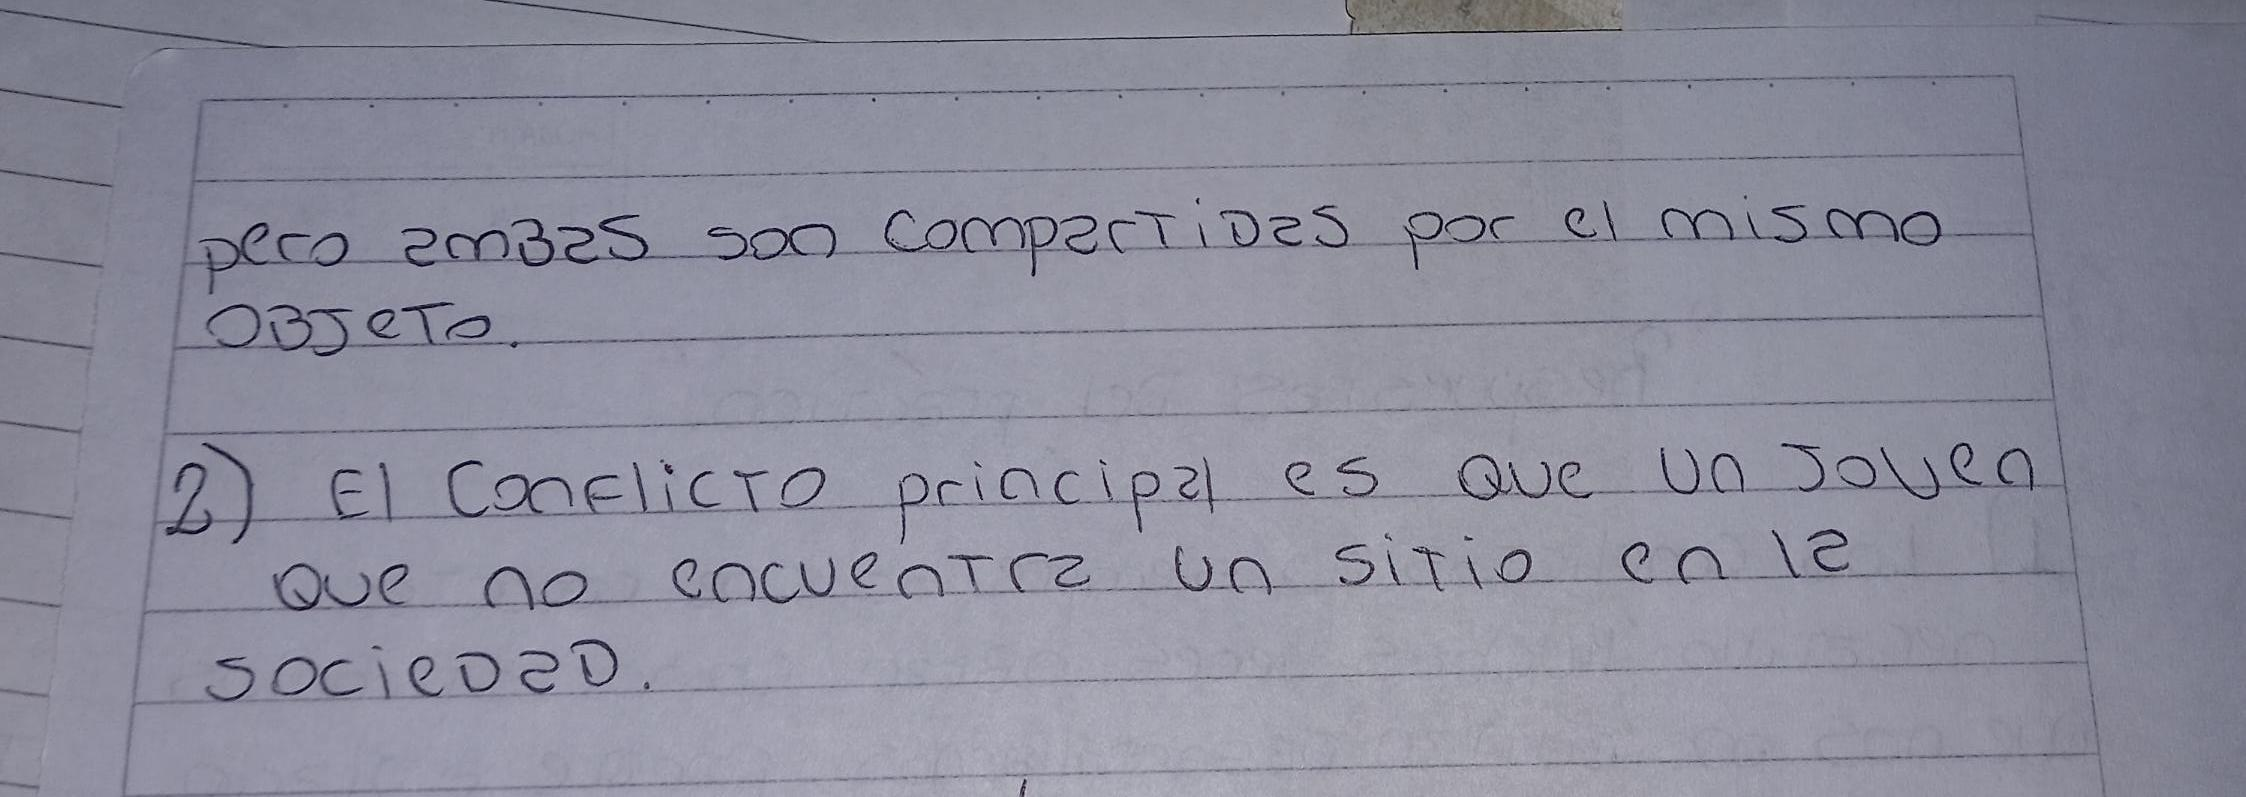 pero ambas son compartidas por el mismo
objeto.
2) El conflicto principal es que un joven
que no encuentra un sitio en la
sociedad.